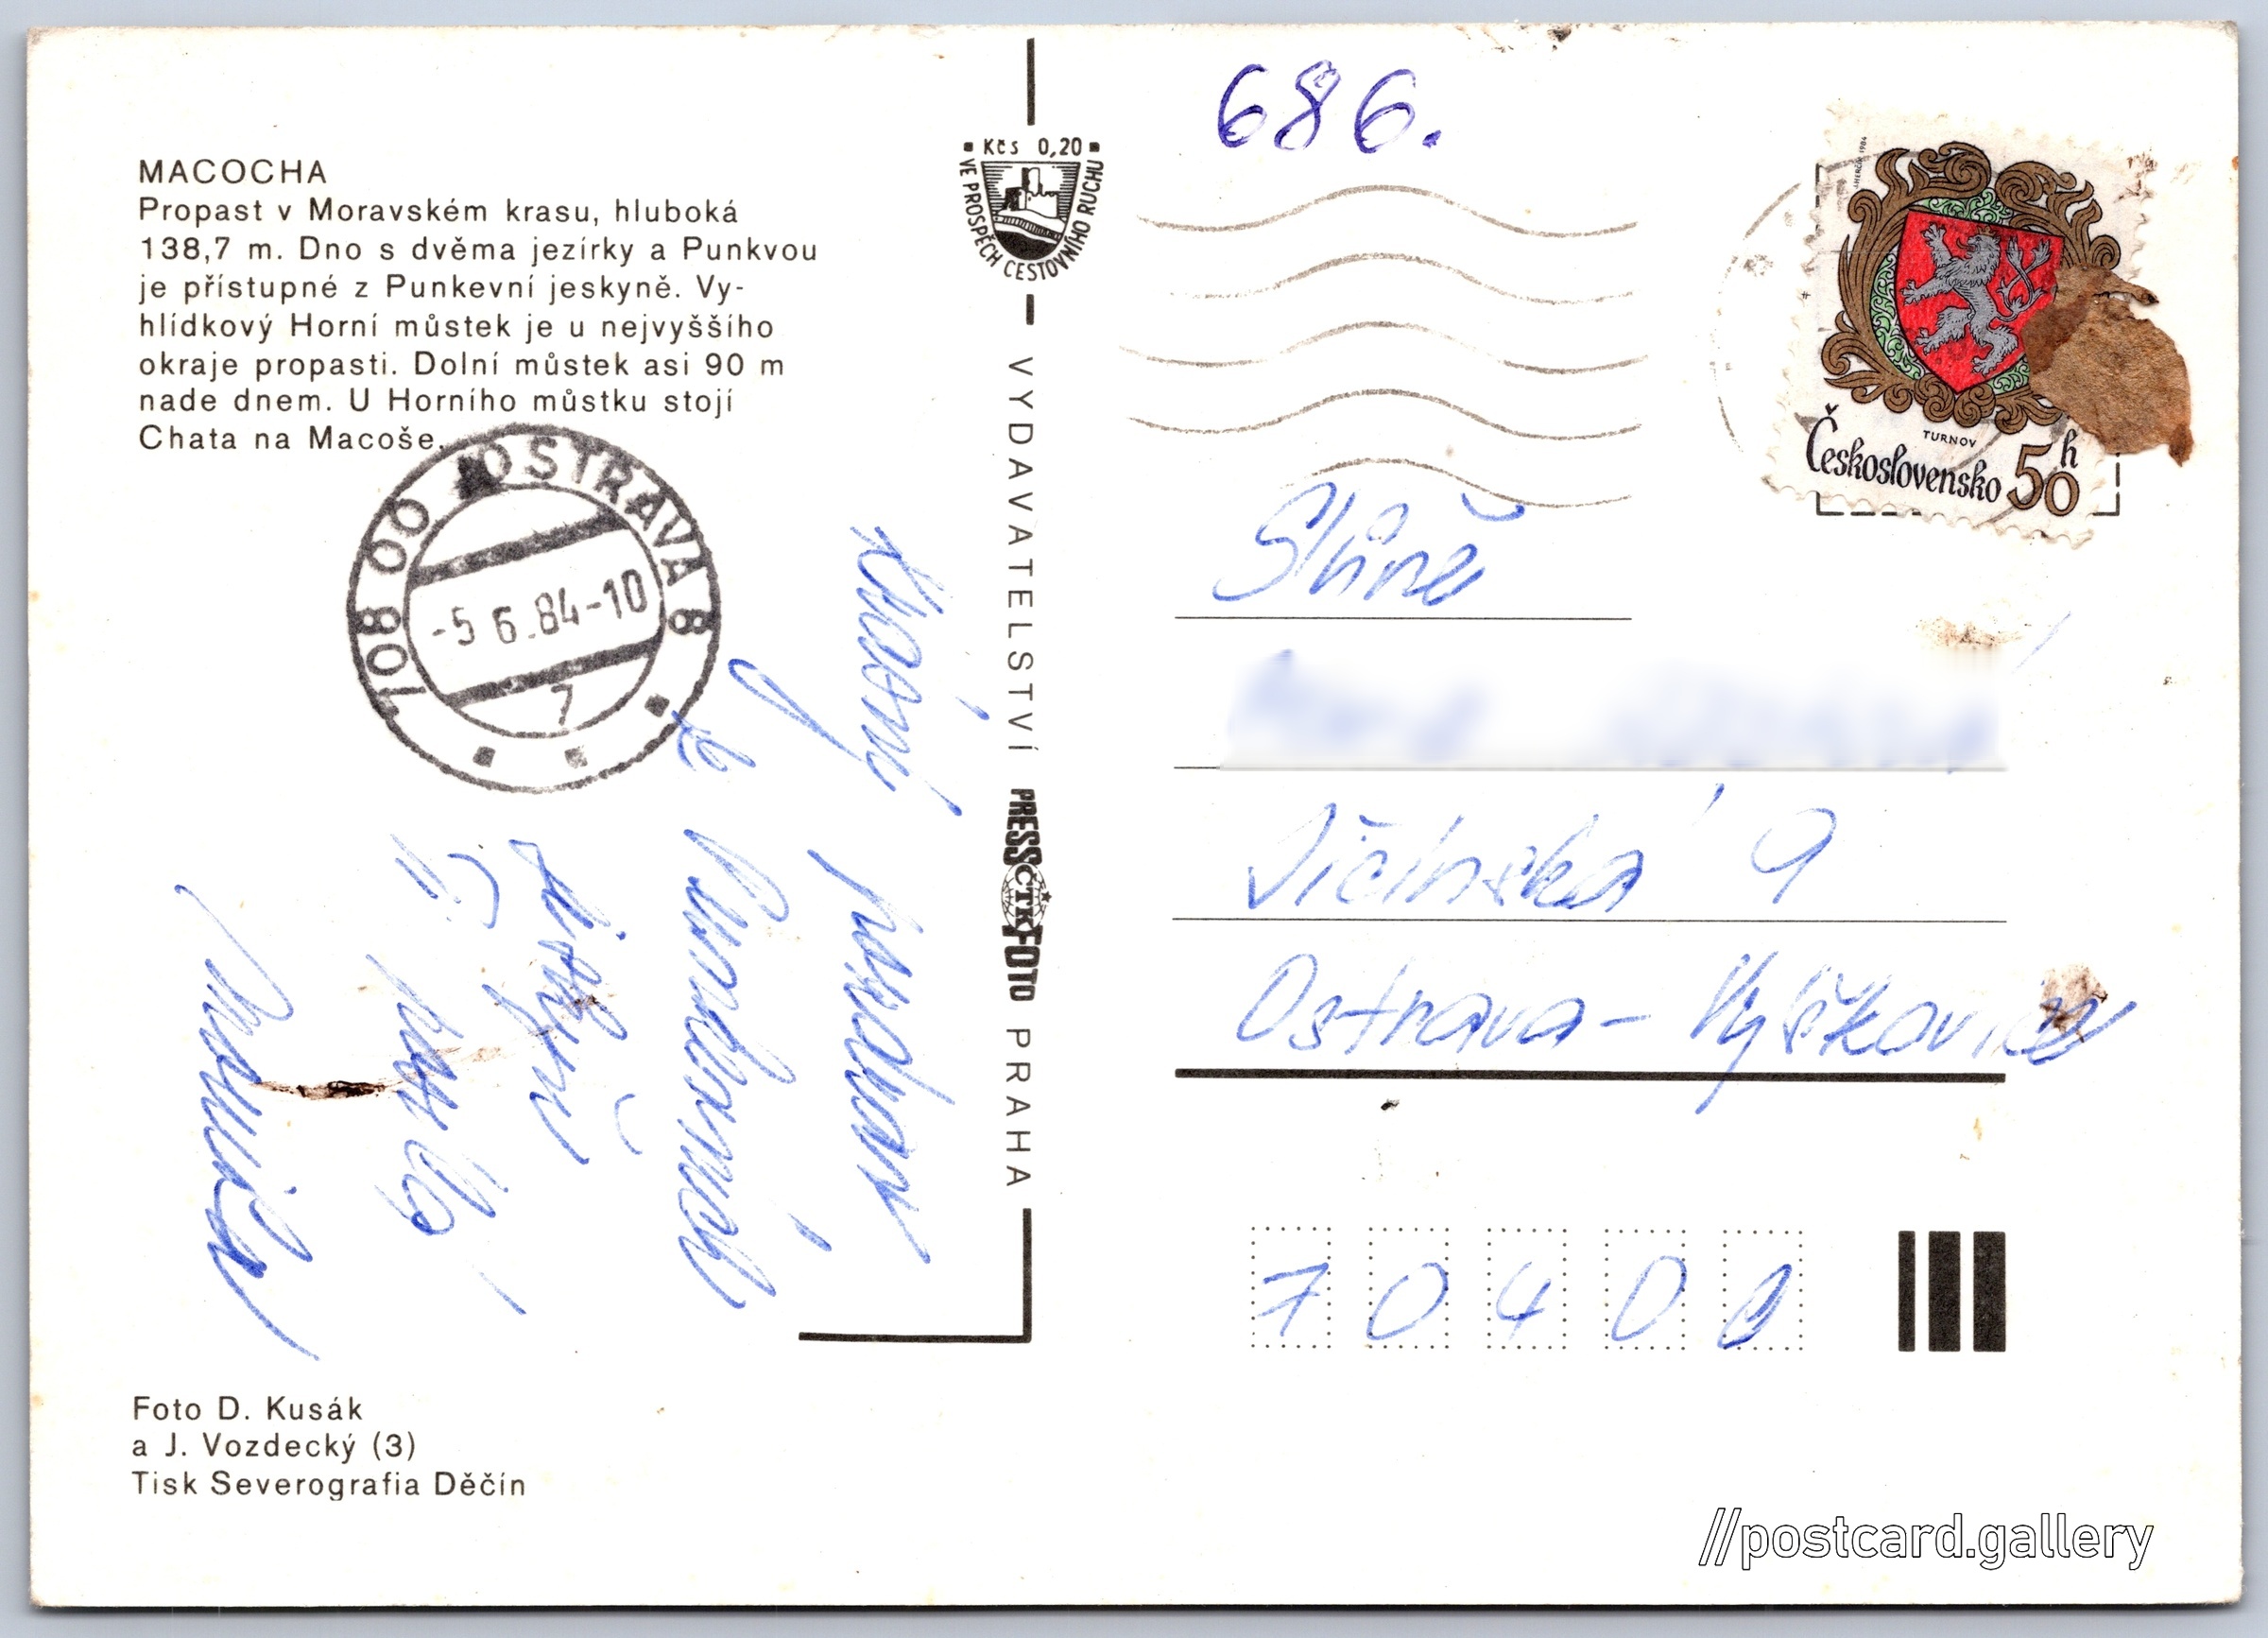 MACOCHA
Propast v Moravském krasu, hluboká
138,7 m. Dno s dvěma jezírky a Punkvou
je přístupné z Punkevní jeskyně. Vy-
hlídkový Horní můstek je u nejvyššího
okraje propasti. Dolní můstek asi 90 m
nade dnem. U Horního můstku stojí
Chata na Macoše.
708 00 OSTRAVA 8
-5 6.84-10
7
Krásný
pozdrav
ze
posílá
Foto D. Kusák
a J. Vozdecký (3)
Tisk Severografia Děčín
Kčs 0,20
VE PROSPĚCH CESTOVNÍHO RUCHU
VYDAVATELSTVÍ PRESSFOTO PRAHA
ČTK
686.
J.HERČÍK 1984
TURNOV
Československo 50h
Jičínská 9
Ostrava-Výškovice
70400
//postcard.gallery